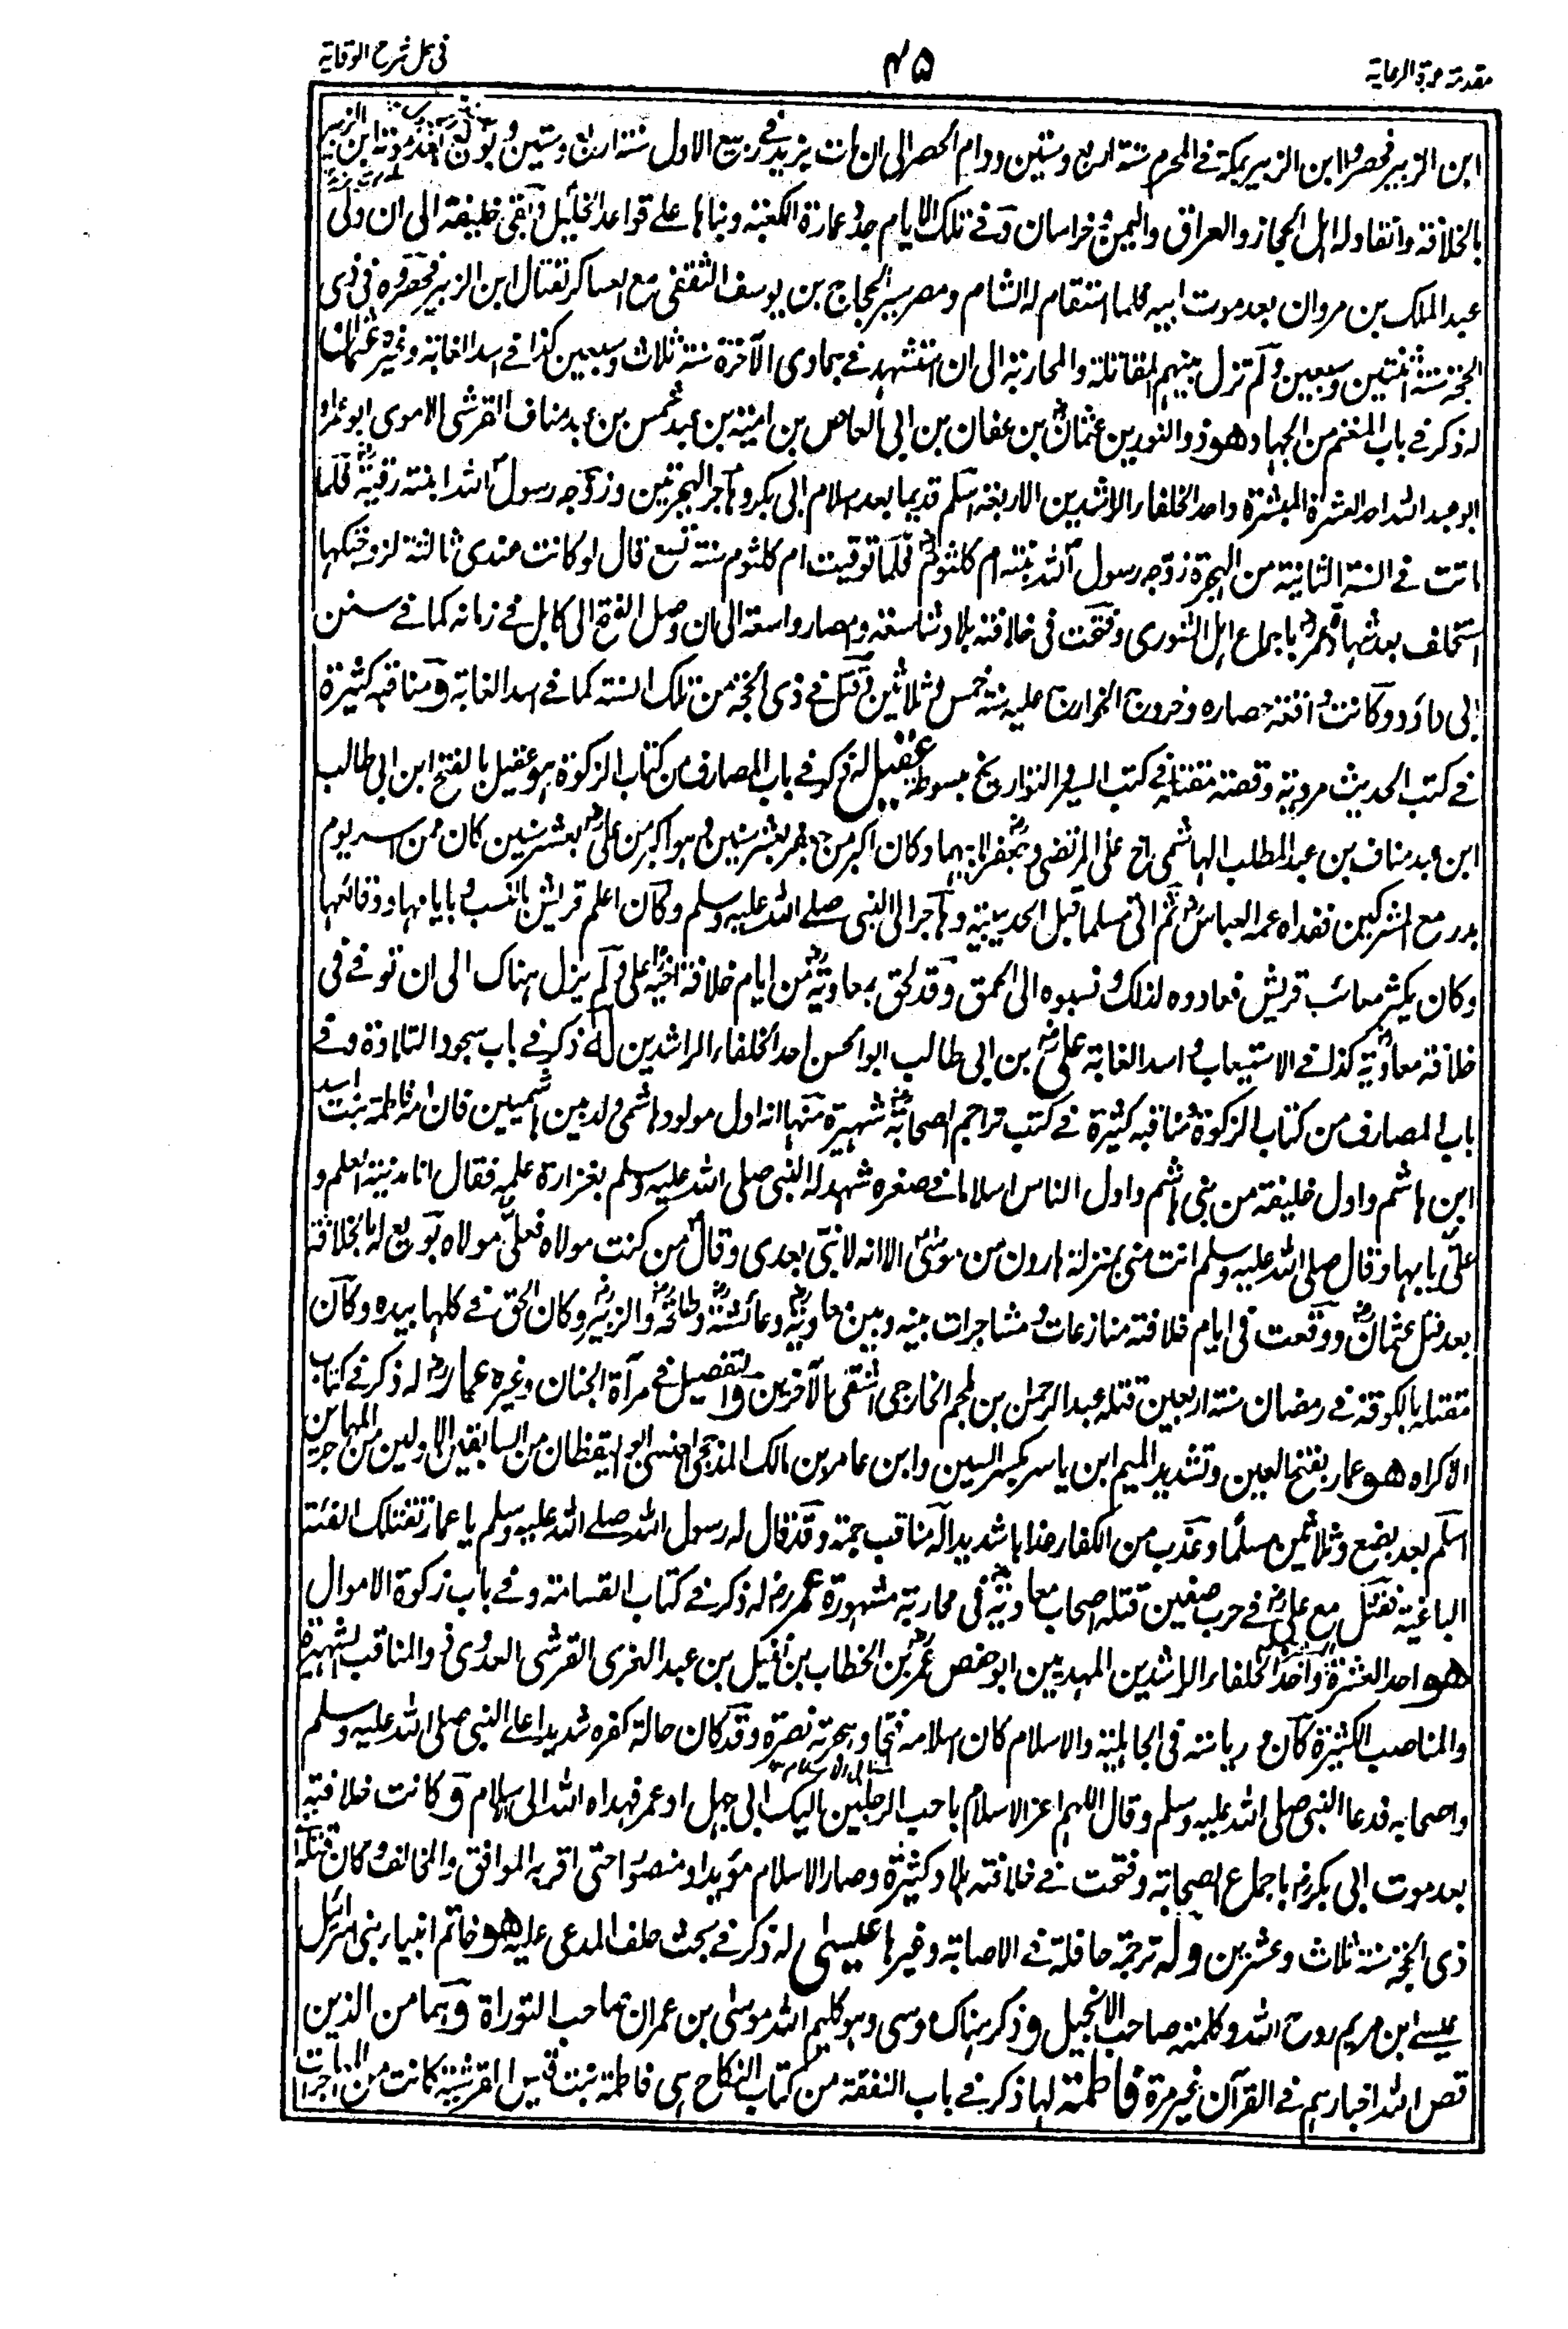 مقدمة عمدة الرعاية
۴۵
فى حل شرح الوقاية
ابن الزبير فحصروا ابن الزبير بمكة فے المحرم سنة اربع وستين ودام الحصر الى ان مات يزيد فے ربيع الاول سنة اربع وستين وبويع بعد موته ابن الزبير
بالخلافة وانقاد له اہل الحجاز والعراق واليمن وخراسان وفے تلك الايام جدد عمارة الكعبة وبناہا علے قواعد الخليل وبقى خليفة الى ان ولى
عبد الملك بن مروان بعد موت ابيه فلما استقام له الشام ومصر سير الحجاج بن يوسف الثقفى مع العساكر لقتال ابن الزبير فحصروه فى ذى
الحجة سنة اثنتين وسبعين ولم تزل بينهم المقاتلة والمحاربة الى ان استشهد فے جمادى الآخرة سنة ثلاث وسبعين كذا فے اسد الغابة وغيره عثمان
له ذكر فے باب المغنم من الجهاد وهو ذو النورين عثمان بن عفان بن ابى العاص بن امية بن عبد شمس بن عبد مناف القرشى الاموى ابو عمرو
ابو عبد الله احد العشرة المبشرة واحد الخلفاء الراشدين الاربعة اسلم قديما بعد اسلام ابى بكر وہاجر الہجرتين وزوجه رسول الله ابنته رقية فلما
ماتت فے السنة الثانية من الہجرة زوجه رسول الله بنته ام كلثوم فلما توفيت ام كلثوم سنة تسع قال لو كانت عندى ثالثة لزوجتكها
استخلف بعد شہادة عمر باجماع اہل الشورى وفتحت فى خلافته بلاد شاسعة وامصار واسعة الى ان وصل الفتح الى كابل فے زمانه كما فے سنن
ابى داؤد وكانت واقعة حصاره وخروج الخوارج عليه سنة خمس وثلاثين وقتل فے ذى الحجة من تلك السنة كما فے اسد الغابة ومناقبه كثيرة
فے كتب الحديث مروية وقصة مقتله فے كتب السير والتواريخ مبسوطة عقيل له ذكر فے باب المصارف من كتاب الزكوة ہو عقيل بالفتح ابن ابى طالب
ابن عبد مناف بن عبد المطلب الہاشمى اخ على المرتضى وجعفر لابيہما وكان اكبر من جعفر بعشر سنين وہو اكبر من على بعشر سنين كان ممن اسر يوم
بدر مع المشركين ففداه عمه العباس ثم اتى مسلما قبل الحديبية وہاجر الى النبى صلے الله عليه وسلم وكان اعلم قريش بالنسب وبايامہا ووقائعہا
وكان يكثر معائب قريش فعادوه لذلك ونسبوه الى الحمق وقد لحق بمعاوية من ايام خلافة اخيه على ولم يزل ہناك الى ان توفے فى
خلافة معاوية كذا فے الاستيعاب واسد الغابة على بن ابى طالب ابو الحسن احد الخلفاء الراشدين له ذكر فے باب سجود التلاوة وفے
باب المصارف من كتاب الزكوة ومناقبه كثيرة فے كتب تراجم الصحابة شہيرة منہا انه اول مولود ہاشمى ولد بين ہاشميين فان امه فاطمة بنت اسد
ابن ہاشم واول خليفة من بنى ہاشم واول الناس اسلاما فے صغره شہد له النبى صلى الله عليه وسلم بغزارة علمه فقال انا مدينة العلم و
على بابہا وقال صلى الله عليه وسلم انت منى بمنزلة ہارون من موسى الا انه لا نبى بعدى وقال من كنت مولاه فعلى مولاه بويع له بالخلافة
بعد قتل عثمان ووقعت فى ايام خلافته منازعات ومشاجرات بينه وبين معاوية وعائشة وطلحة والزبير وكان الحق فے كلها بيده وكان
مقتله بالكوفة فے رمضان سنة اربعين قتله عبد الرحمن بن ملجم الخارجى اشقى الآخرين والتفصيل فے مرآة الجنان وغيره عمار له ذكر فے كتاب
الاكراه هو عمار بفتح العين وتشديد الميم ابن ياسر بكسر السين وابن عامر بن مالك المذحجى العنسى ابو اليقظان من السابقين الاولين من المہاجرين
اسلم بعد بضع وثلاثين مسلما وعذب من الكفار عذابا شديدا له مناقب جمة وقد قال له رسول الله صلے الله عليه وسلم يا عمار تقتلك الفئة
الباغية فقتل مع على فے حرب صفين قتله اصحاب معاوية فى محاربة مشہورة عمر رض له ذكر فے كتاب القسامة وفے باب زكوة الاموال
هو احد العشرة واحد الخلفاء الراشدين المهديين ابو حفص عمر بن الخطاب بن نفيل بن عبد العزى القرشى العدوى ذو المناقب الشہيرة
والمناصب الكثيرة كان رياسته فى الجاہلية والاسلام كان اسلامه فتحا وہجرته نصرة وقد كان حالة كفره شديدا علے النبى صلى الله عليه وسلم
واصحابه فدعا النبى صلى الله عليه وسلم وقال اللہم اعز الاسلام باحب الرجلين اليك ابى جہل او عمر فہداه الله الى الاسلام وكانت خلافته
بعد موت ابى بكر رض باجماع الصحابة وفتحت فے خلافته بلاد كثيرة وصار الاسلام مؤيدا ومنصورا حتى اقر به الموافق والمخالف وكان قتله
ذى الحجة سنة ثلاث وعشرين وله ترجمة حافلة فے الاصابة وغيرہا عيسى له ذكر فے بحث حلف المدعى عليه هو خاتم انبياء بنى اسرائيل
عيسے ابن مريم روح الله وكلمته صاحب الانجيل وذكر ہناك موسى وہو كليم الله موسى بن عمران صاحب التوراة وہما من الذين
قص الله اخبارہم فے القرآن غير مرة فاطمة لہا ذكر فے باب النفقة من كتاب النكاح ہى فاطمة بنت قيس القرشية كانت من المہاجرات